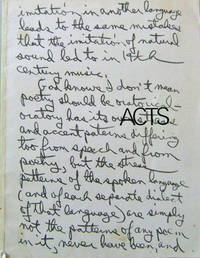 imitation in another language
leads to the same mistakes
that the imitation of natural
sound led to in 19th
century music.
God knows I don't mean
poetry should be oratorical—
oratory has its
ACTS
and accent paterns differing
too from speech and from
poetry, but the stress
patterns of the spoken language
(and of each separate dialect
of that language) are simply
not the patterns of any poem
in it, never have been, and